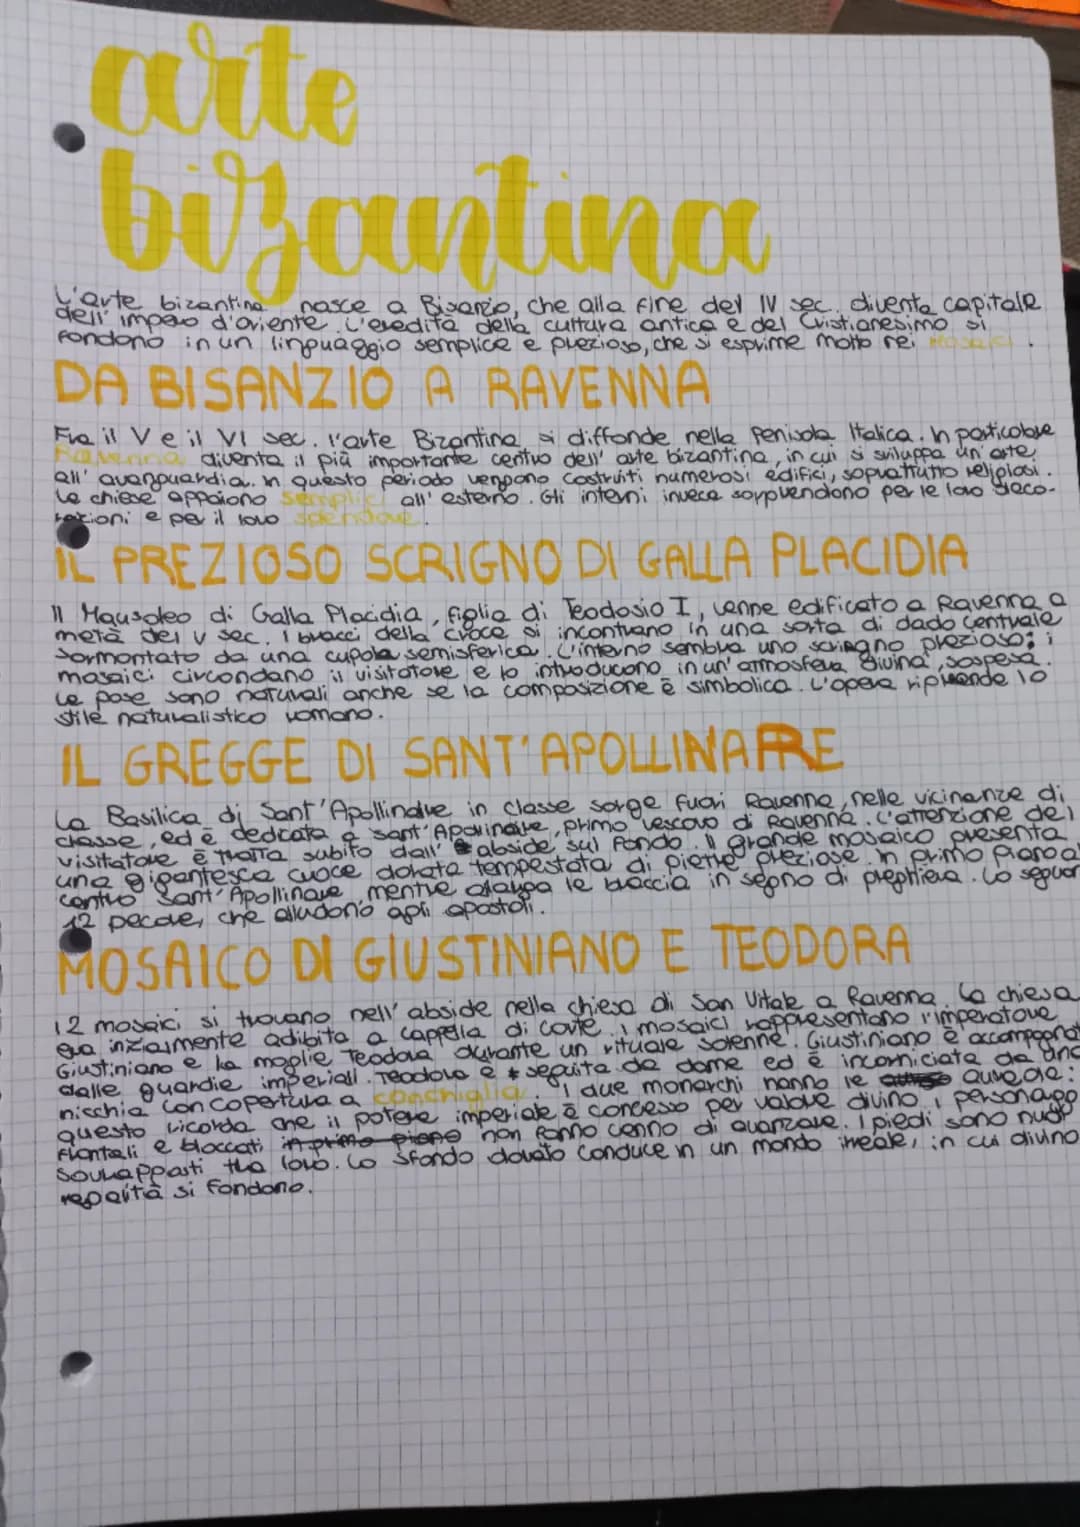 arte
bizantina
L'arte bizantina nasce a Bisanzio, che alla fine del IV sec. diventa capitale
dell'impero d'oriente. L'eredità della cultura antica e del Cristianesimo si
fondono in un linguaggio semplice e prezioso, che si esprime molto nei mosaici.
DA BISANZIO A RAVENNA
Fra il V e il VI sec. l'arte Bizantina si diffonde nella Penisola Italica. In particolare
Ravenna diventa il più importante centro dell'arte bizantina, in cui si sviluppa un'arte
all'avanguardia. In questo periodo vengono costruiti numerosi edifici, soprattutto religiosi.
Le chiese appaiono semplici all'esterno. Gli interni invece sorprendono per le loro deco-
razioni e per il loro splendore.
IL PREZIOSO SCRIGNO DI GALLA PLACIDIA
Il Mausoleo di Galla Placidia, figlia di Teodosio I, venne edificato a Ravenna a
metà del V sec. I bracci della croce si incontrano in una sorta di dado centrale
sormontato da una cupola semisferica. L'interno sembra uno scrigno prezioso: i
mosaici circondano il visitatore e lo introducono in un'atmosfera divina, sospesa.
Le pose sono naturali anche se la composizione è simbolica. L'opera riprende lo
stile naturalistico romano.
IL GREGGE DI SANT'APOLLINARE
La Basilica di Sant'Apollinare in classe sorge fuori Ravenna, nelle vicinanze di
classe, ed è dedicata a sant'Apollinare, primo vescovo di Ravenna. L'attenzione del
visitatore è tratta subito dall' abside sul fondo. Il grande mosaico presenta
una gigantesca croce dorata tempestata di pietre preziose. In primo piano al
centro Sant'Apollinare, mentre allarga le braccia in segno di preghiera. Lo seguon
12 pecore, che alludono agli apostoli.
MOSAICO DI GIUSTINIANO E TEODORA
I 2 mosaici si trovano nell'abside nella chiesa di San Vitale a Ravenna. La chiesa
era inzialmente adibita a cappella di corte. I mosaici rappresentano l'imperatore
Giustiniano e la moglie Teodora durante un rituale solenne. Giustiniano è accompagnat
dalle guardie imperiali. Teodora è seguita da dame ed è incorniciata da una
nicchia con copertura a conchiglia. I due monarchi hanno le aureole:
questo ricorda che il potere imperiale è concesso per valore divino. I personagg
frontali e bloccati in primo piano non fanno cenno di avanzare. I piedi sono nudi
sovrapposti tra loro. Lo sfondo dorato conduce in un mondo irreale, in cui divino
regalità si fondono.